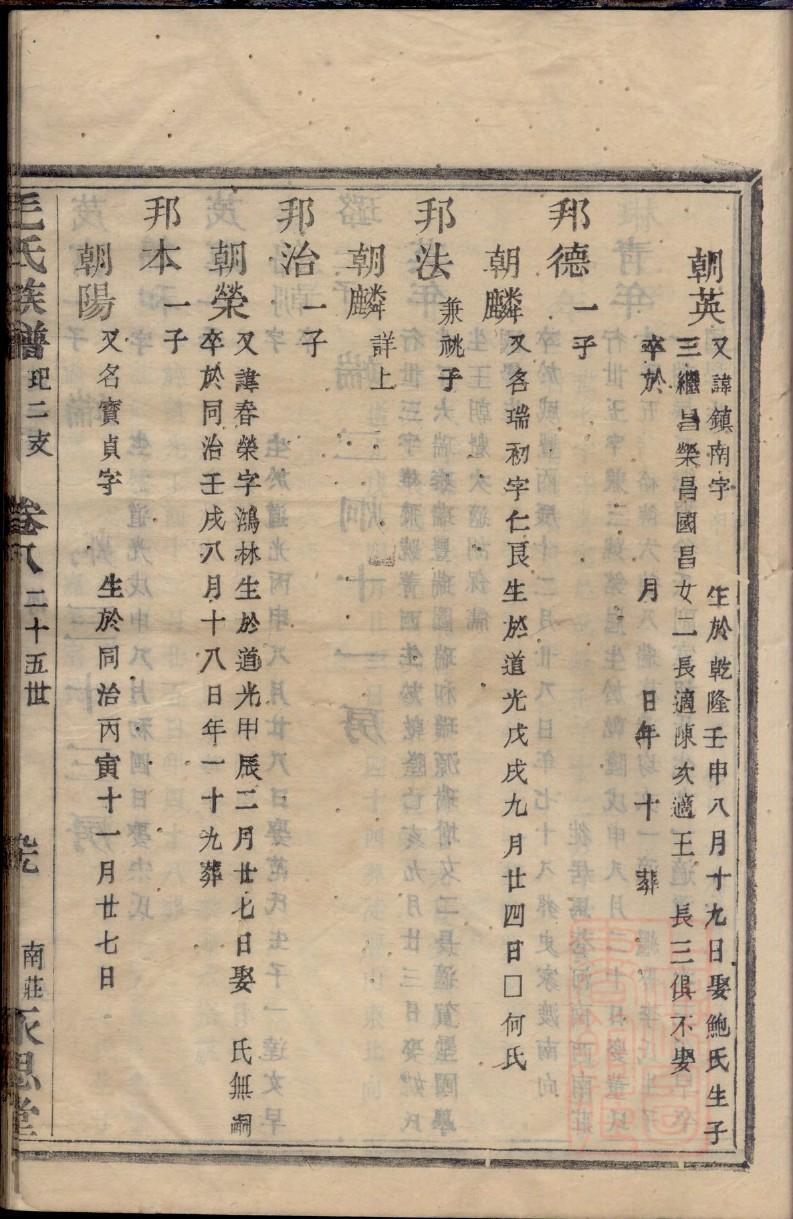 朝英
又諱鎮南字　生於乾隆壬申八月十九日娶鮑氏生子
三繼昌榮昌國昌女二長適陳次適王　長三俱不娶
卒於　月　日年　十　葬
邦德
一子
朝麟
又名瑞初字仁良生於道光戊戌九月廿四日□何氏
邦法
兼祧子
朝麟
詳上
邦治
一子
朝榮
又諱春榮字鴻林生於道光甲辰二月廿七日娶　氏無嗣
卒於同治壬戌八月十八日年一十九葬
邦本
一子
朝陽
又名寶貞字　生於同治丙寅十一月廿七日
毛氏族譜　玘二支　卷八　二十五世　南莊　永思堂